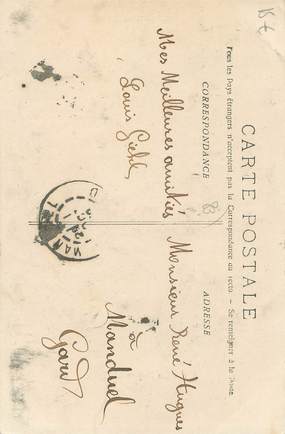 CARTE POSTALE
Tous les Pays étrangers n'acceptent pas la Correspondance au recto. — Se renseigner à la Poste.
CORRESPONDANCE
ADRESSE
15 €
83
Mes Meilleures amitiés
Louis
Monsieur René Hugues
à
Manduel
Gard